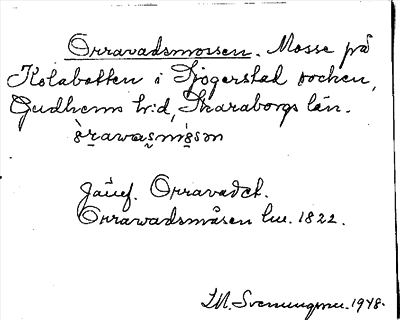 Orravadsmossen. Mosse på
Kolabotten i Sjogerstad socken,
Gudhems hr:d, Skaraborgs län.
Jämf. Orravadet.
Orrawadsmåsen lm. 1822.
S.M. Svenungsson. 1948.